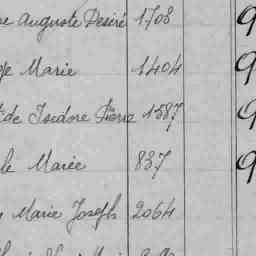 Auguste Désiré 1708 9
Marie 1404 9
de Isidore Pierre 1587 9
le Marie 837 9
Marie Joseph 2064